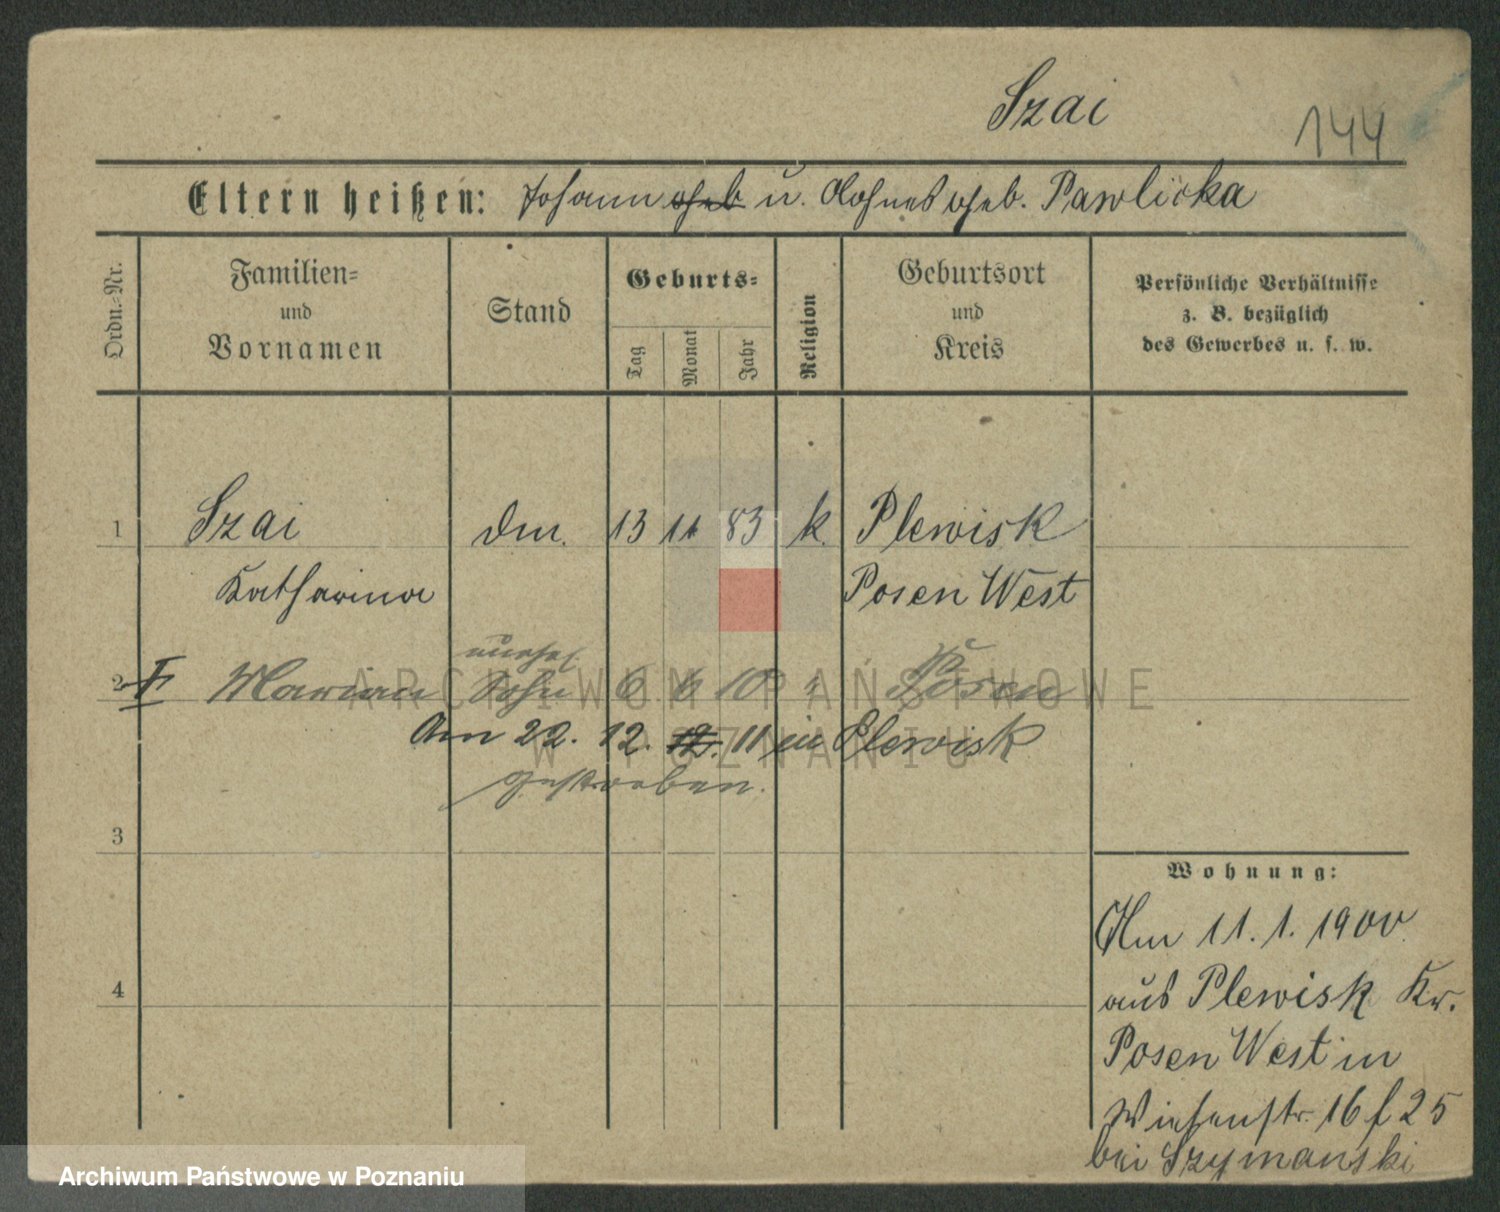 Szai
144
Eltern heißen: Johann geb u. Agnes geb. Pawlicka
Ordn.-Nr.
Familien-
und
Vornamen
Stand
Geburts-
Tag
Monat
Jahr
Religion
Geburtsort
und
Kreis
Persönliche Verhältnisse
z. B. bezüglich
des Gewerbes u. s. w.
1 Szai dm. 13 11 83 k. Plewisk
Katharina Posen West
unehel.
2 Marian Sohn 6 6 10 Posen
Am 22. 12. 12. 11 in Plewisk
gestorben.
3
4
Wohnung:
Am 11. 1. 1900
aus Plewisk Kr.
Posen West in
Wiesenstr. 16 f 25
bei Szymanski
ARCHIWUM PAŃSTWOWE
W POZNANIU
Archiwum Państwowe w Poznaniu